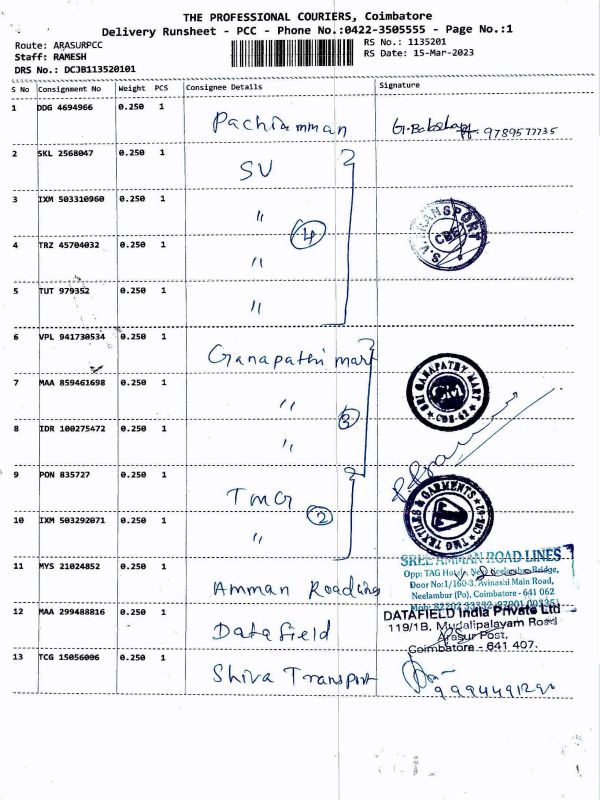 THE PROFESSIONAL COURIERS, Coimbatore
Delivery Runsheet - PCC - Phone No.:0422-3505555 - Page No.:1
Route: ARASURPCC
RS No.: 1135201
Staff: RAMESH
RS Date: 15-Mar-2023
DRS No.: DCJB113520101
S No Consignment No Weight PCS Consignee Details Signature
1 DDG 4694966 0.250 1 Pachiamman 9789577735
2 SKL 2568047 0.250 1 SV
3 IXM 503310960 0.250 1 〃 4
S.V. TRANSPORT
CBE
4 TRZ 45704032 0.250 1 〃
5 TUT 979352 0.250 1 〃
6 VPL 941730534 0.250 1 Ganapathi mart
7 MAA 859461698 0.250 1 〃
SRI GANAPATHY MART
CBE-62
8 IDR 100275472 0.250 1 〃 3
9 PON 835727 0.250 1 TMG
10 IXM 503292071 0.250 1 〃 2
TMG TEXTILES & GARMENTS
CBE-62
11 MYS 21024852 0.250 1 Amman Roadlines
SREE AMMAN ROAD LINES
Opp: TAG Hotels, Bridge,
Door No:1/160-3, Avinashi Main Road,
Neelambur (Po), Coimbatore - 641 062
12 MAA 299488816 0.250 1 Datafield
DATAFIELD India Private Ltd
119/1B, Mudalipalayam Road
Arasur Post,
Coimbatore - 641 407.
13 TCG 15056006 0.250 1 Shiva Transport